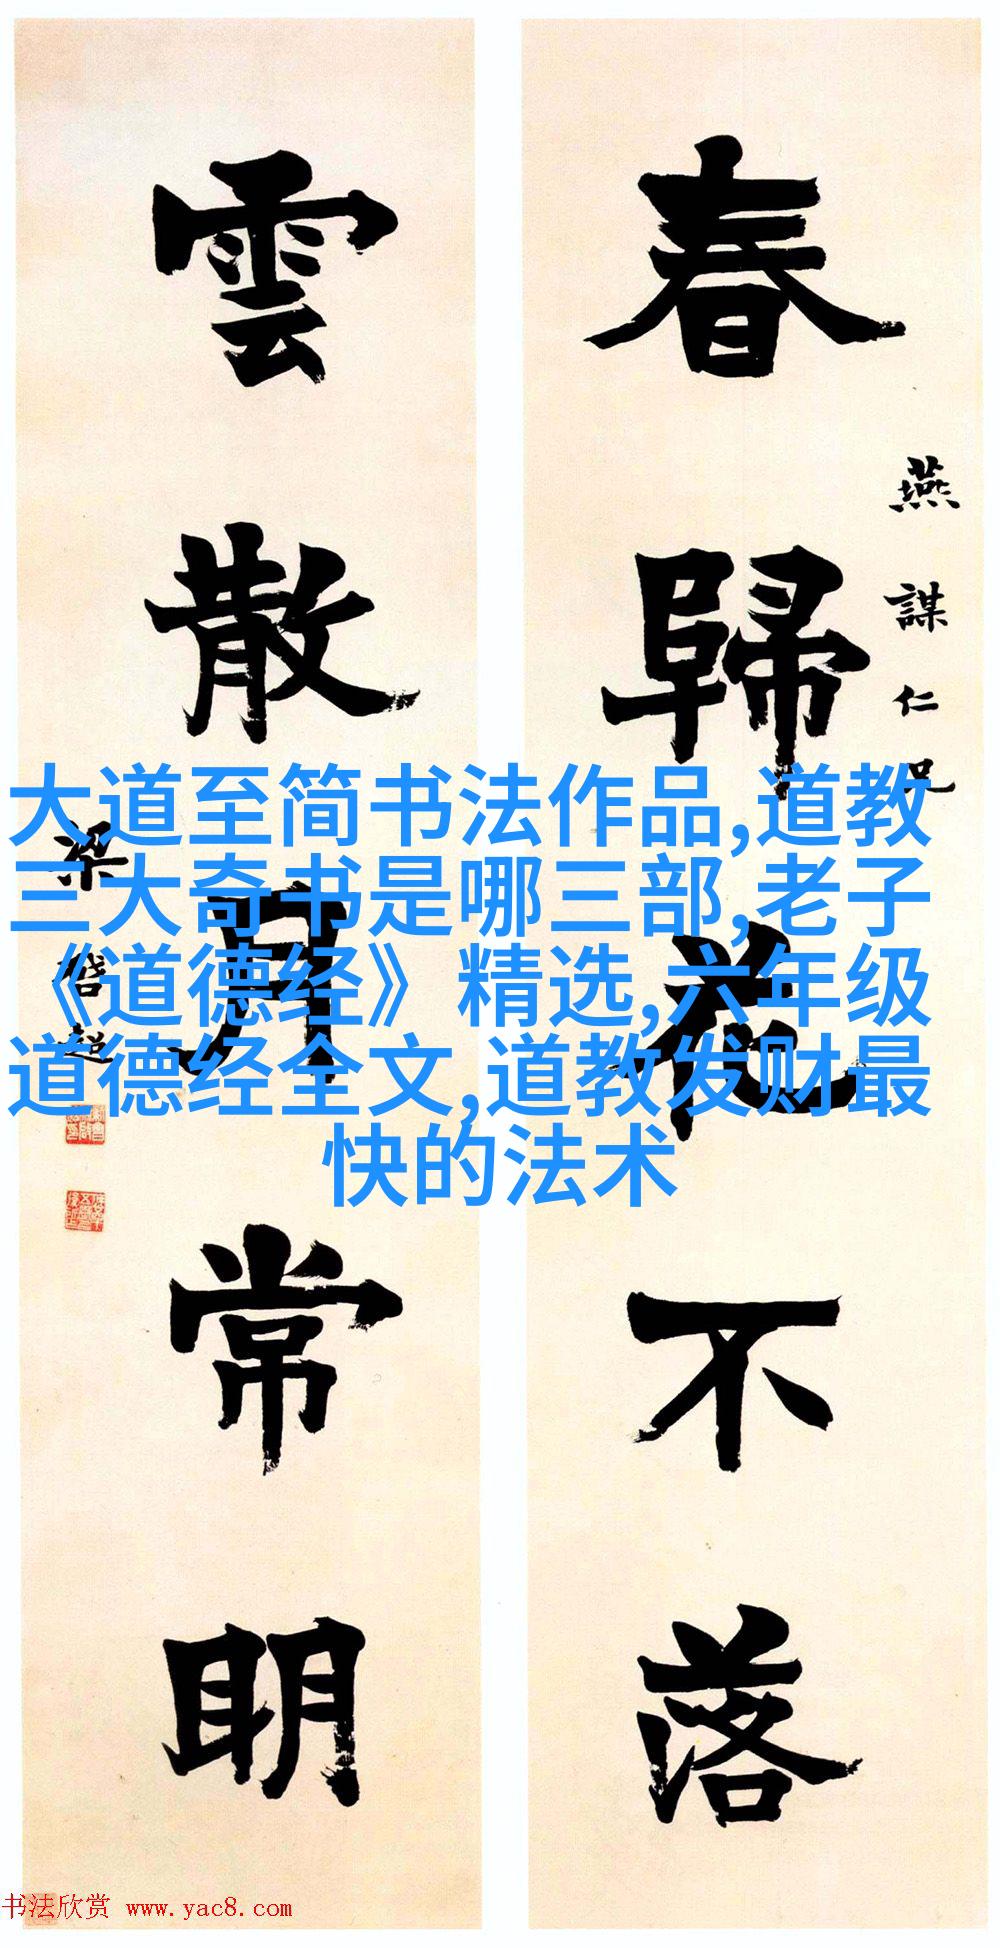 春歸花不落
燕謀仁兄
雲散月常明
梁啓超
大道至简书法作品,道教
三大奇书是哪三部,老子
《道德经》精选,六年级
道德经全文,道教发财最
快的法术
书法欣赏 www.yac8.com